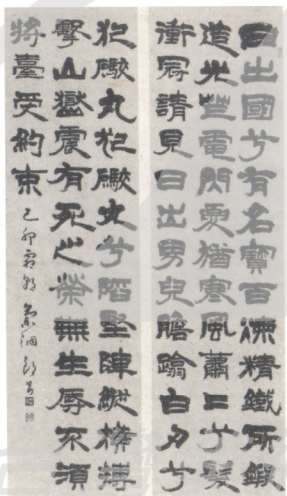 日出國兮有名寶百湅精鐵所鍛
造光芒電閃猶寒風蕭〻兮髮
衝冠請見日出男兒膽踰白刃兮
犯礮丸犯礮丸兮陷堅陣縱橫搏
擊山嶽震有死之榮無生辱不須
將臺受約束
己卯